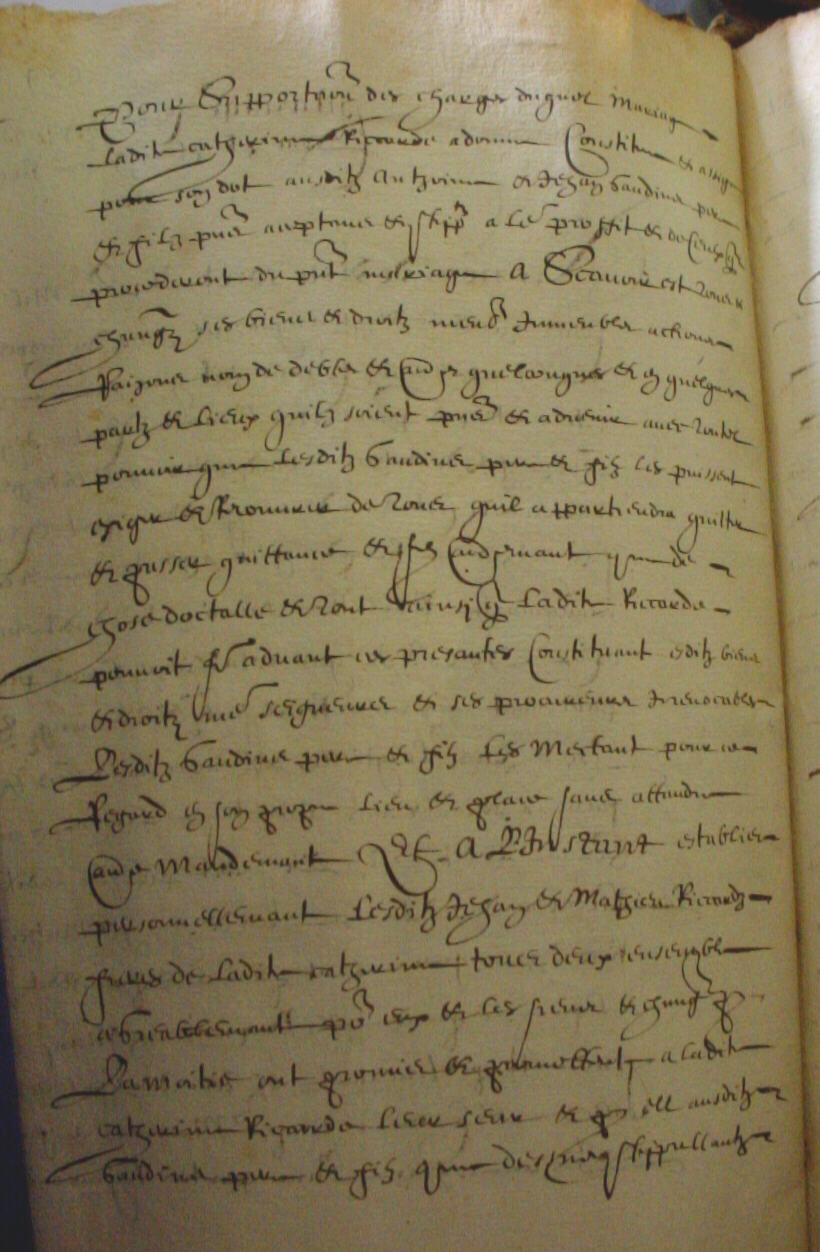 Pour Supportaõn des charges duquel Mariage
Ladite catherine Riccarde a donne Constitue et assig
pour son dot ausditz Anthoine et Jehan Gaudins pere
et filz pñs acceptans et stipp a leˢ proffit et de ceulx q̃
procederont du pñt mariage A Scavoir est tous et
chungz ses biens et droitz meubˢ Immeubles actions
Raisons nom de debtes et quelconques et en quelques
partz et lieux quilz soient pñs et advenir avec toutte
pouvoir que Lesditz Gaudins pere et filz les puissent
exiger et Recouvrer de tous quil appartiendra quitter
et passer quittance et que de
chose doctalle et tout ainsi q̃ Ladite Ricorde
pouvoit fˢ advant ces presantes Constituant esditz biens
et droitz seigneurs et ses procureurs Irrevocables
Lesditz Gaudins pere et filz Les Mectant pour ce
Regard en son propre lieu et place sans attendre
Mandemant Et A L'Instant establies
personnellemant Lesditz Jehan et Mathieu Riccardz
freres de Ladite catherine tous deux ensemble
pᵒ eux et les siens et chungˢ p
La moitie ont promis et promettent a Ladite
catherine Ricarde leur seur et p elle ausditz
Gaudins pere et filz stippullantz